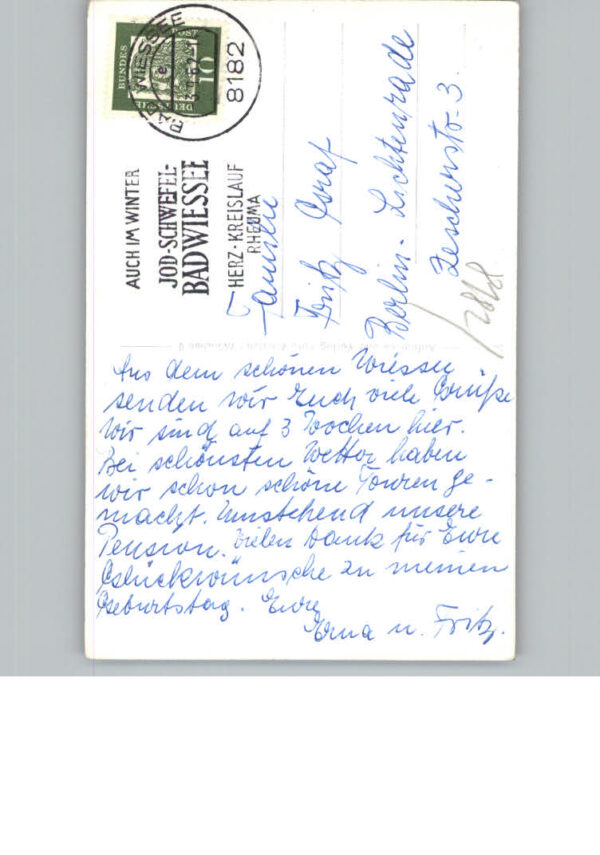 BAD WIESSEE
8182
DEUTSCHE BUNDESPOST
10
AUCH IM WINTER
JOD-SCHWEFEL-
BAD WIESSEE
HERZ-KREISLAUF
RHEUMA
Familie
Fritz Graf
Berlin-Lichtenrade
Zescherstr. 3.
Aus dem schönen Wiessee
senden wir Euch viele Grüße
Wir sind auf 3 Wochen hier.
Bei schönsten Wetter haben
wir schon schöne Touren ge-
macht. Umstehend unsere
Pension. Vielen Dank für Eure
Glückwünsche zu meinen
Geburtstag. Eure
Erna u. Fritz.